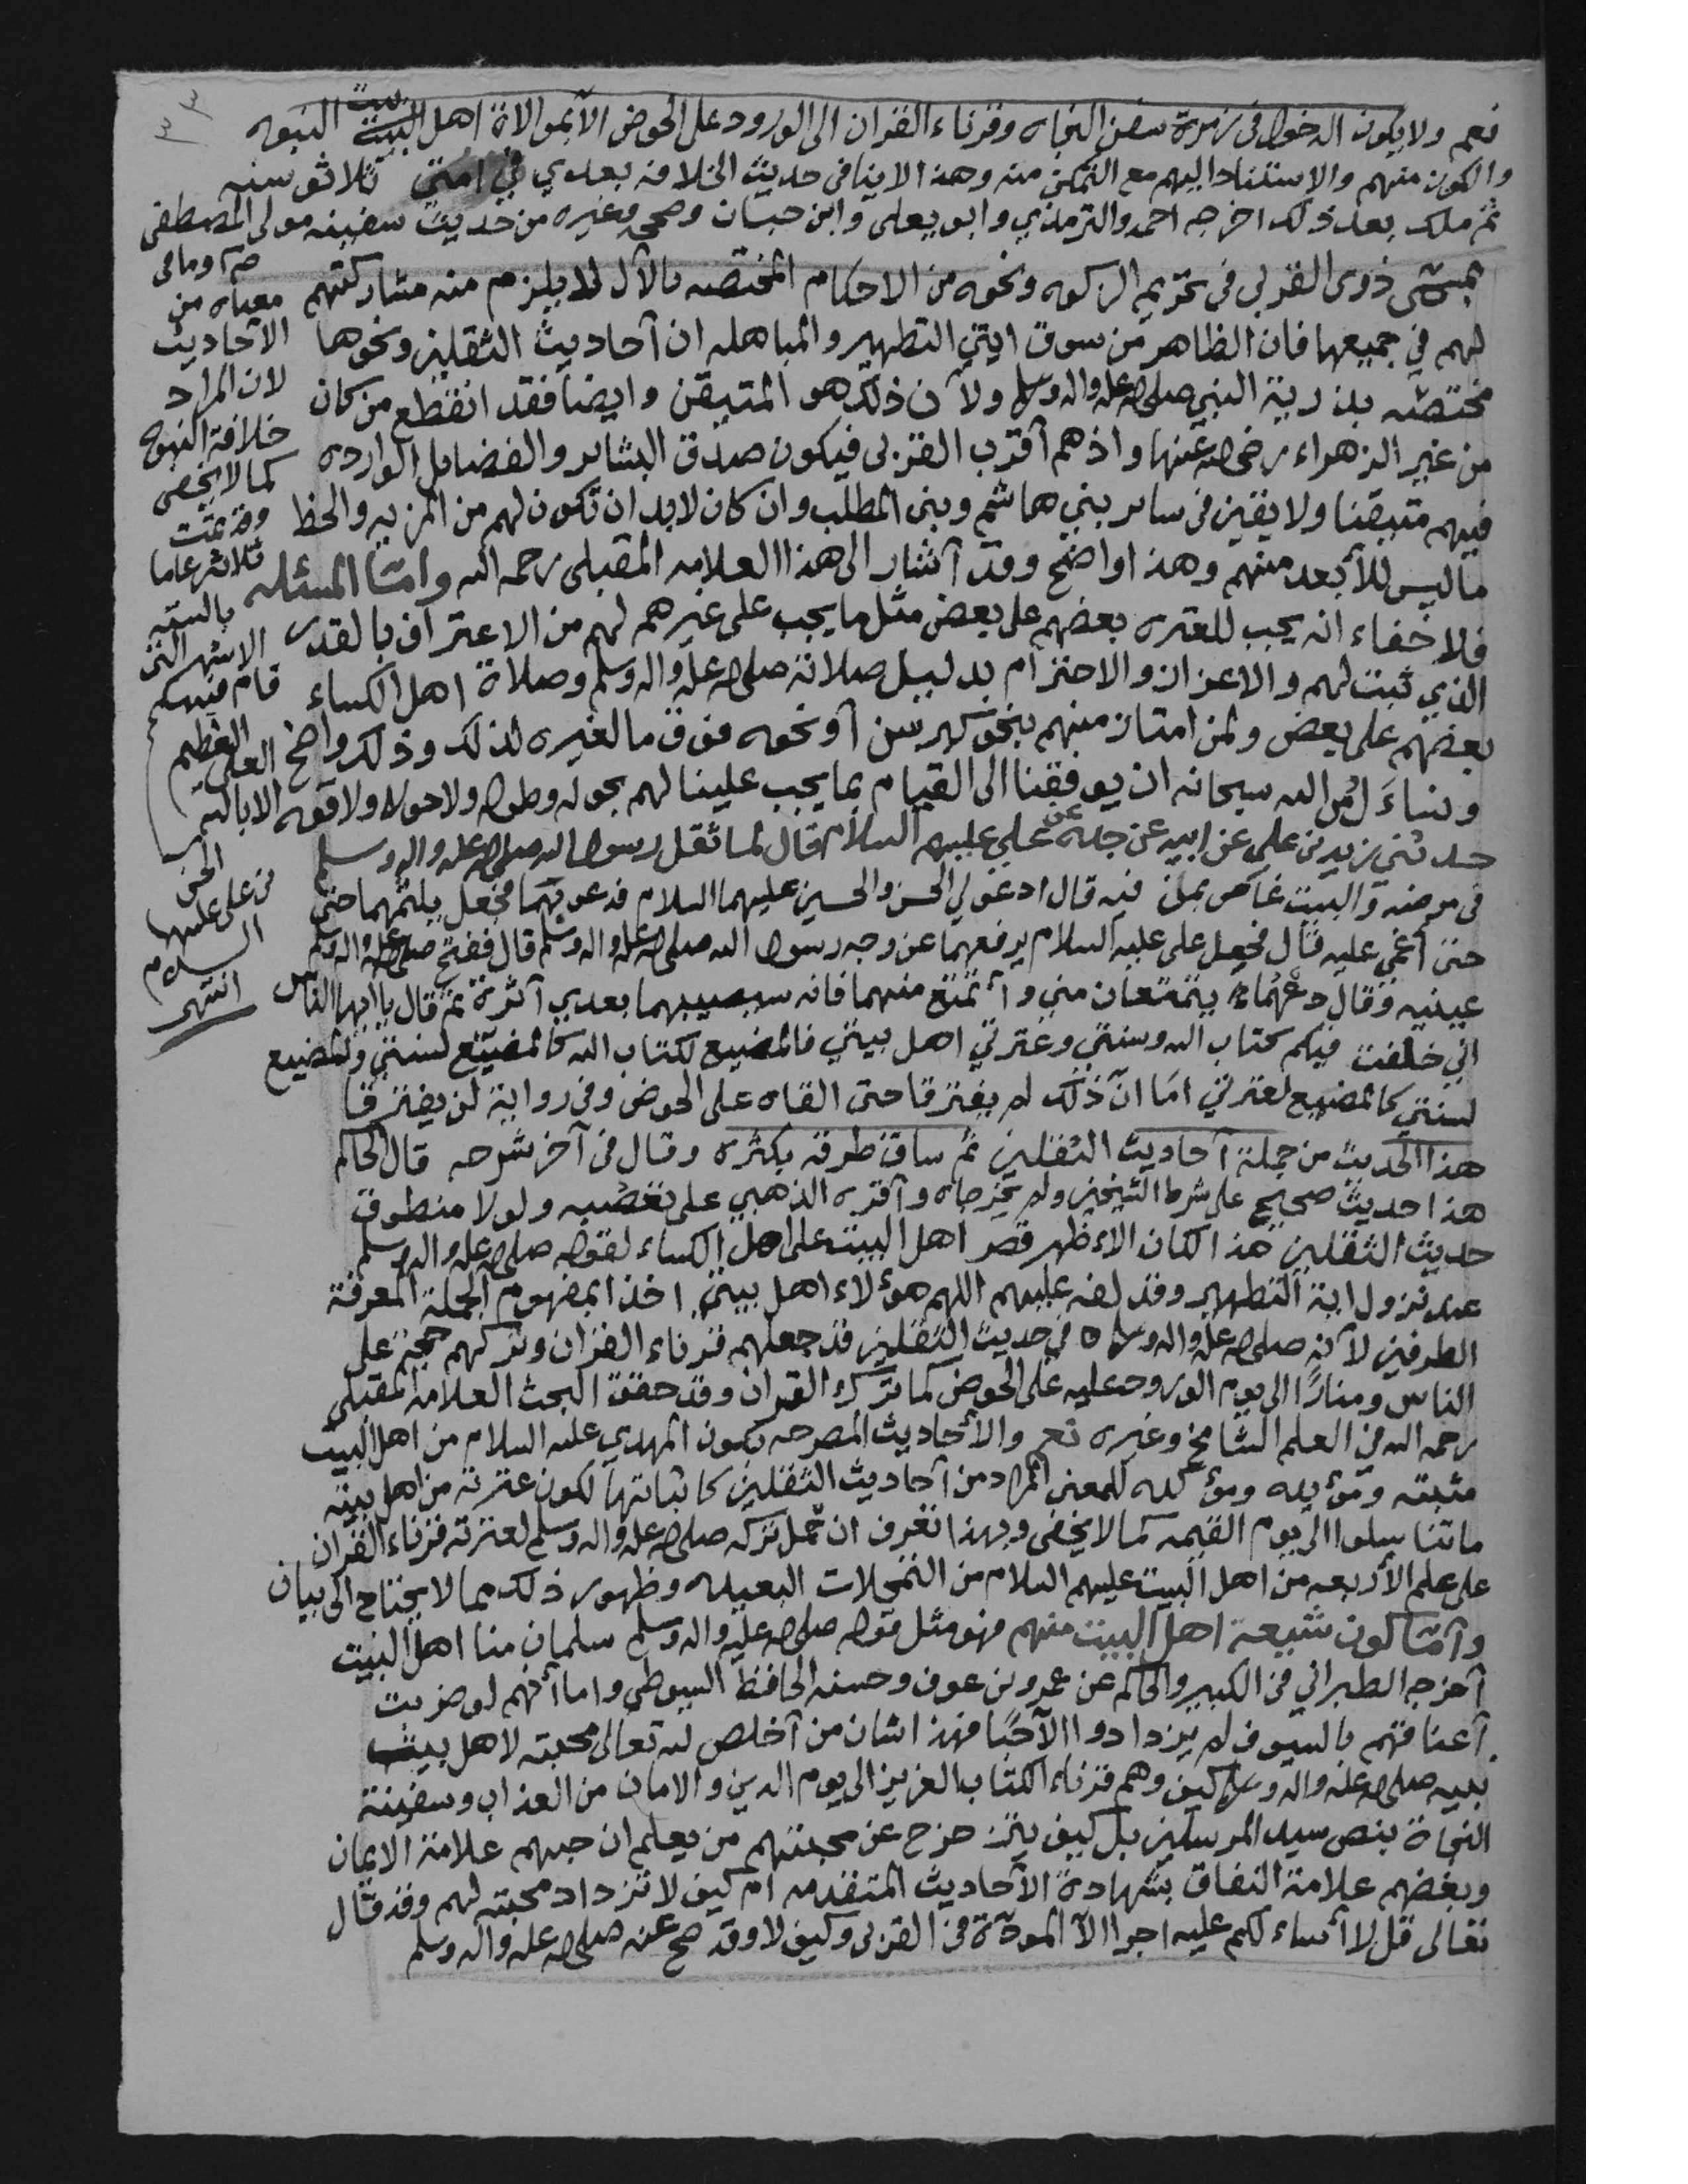 نعم ولا يكون الدخول في زمرة سفن النجاه وقرناء القران الى الورود على الحوض الا بموالاة اهل بيت النبوه
والكون منهم والاستناد اليهم مع التمكن منه وهذا لا ينافي حديث الخلافه بعدي في امتي ثلاثون سنه
ثم ملك بعد ذلك اخرجه احمد والترمذي وابو يعلى وابن حبان وصححه وغيره من حديث سفينه مولى المصطفى
صلم وما في
معناه من
الاحاديث
لان المراد
خلافة النبوه
كما لا يخفى
وقد تمت
ثلاثون عاما
بالسته
الاشهر التي
قام فيها
الحسن
بن علي عليهما
السلام
انتهى
ذوى القربى في تحريم الزكوه ونحوه من الاحكام المختصه بالآل لا يلزم منه مشاركتهم
لهم في جميعها فان الظاهر من سوق ايتي التطهير والمباهله ان احاديث الثقلين ونحوها
مختصه بذرية النبي صلى الله عليه واله وسلم ولأن ذلك هو المتيقن وايضا فقد انقطع من كان
من غير الزهراء رضي الله عنها واذ هم اقرب القربى فيكون صدق البشاير والفضايل الوارده
فيهم متيقنا ولا يقين في ساير بني هاشم وبنى المطلب وان كان لا بد ان تكون لهم من المزيه والحظ
ما ليس للأبعد منهم وهذا واضح وقد آشار الى هذا العلامه المقبلي رحمه الله وامّا المسئله
فلا خفاء انه يجب للعتره بعضهم على بعض مثل ما يجب على غيرهم لهم من الاعتراف بالقدر
الذي ثبت لهم والاعزاز والاحترام بدليل صلاته صلى الله عليه واله وسلم وصلاة اهل الكساء
بعضهم على بعض ولمن امتاز منهم بنحو كبر سن آو نحوه فوق ما لغيره لذلك وذلك واضح
ونساءَل من الله سبحانه ان يوفقنا الى القيام بما يجب علينا لهم بحوله وطوله ولا حول ولا قوه الا بالله العلي العظيم
حدثني زيد بن علي عن ابيه عن جده عن علي عليهم السلام قال لما ثقل رسول الله صلى الله عليه واله وسلم
في مرضه والبيت غاص بمن فيه قال ادعو لي الحسن والحسين عليهما السلام فدعوتهما فجعل يلثمهما حتى
حتى اغمي عليه قال فجعل علي عليه السلام يرفعهما عن وجه رسول الله صلى الله عليه واله وسلم قال ففتح صلى الله عليه واله وسلم
عينيه وقال دعهما يتمتعان مني وأتمتع منهما فانه سيصيبهما بعدي آثرة ثم قال يا ايها الناس
اني خلفت فيكم كتاب الله وسنتي وعترتي اهل بيتي فالمضيع لكتاب الله كالمضيّع لسنتي والمضيع
لسنتي كالمضيع لعترتي امَا انّ ذلك لم يفترقا حتى القاه على الحوض وفي رواية لن يفترقا
هذا الحديث من جملة آحاديث الثقلين ثم ساق طرقه بكثره وقال في آخر شرحه قال الحاكم
هذا حديث صحيح على شرط الشيخين ولم يخرجاه وآقره الذهبي على تعصبه ولولا منطوق
حديث الثقلين هذا لكان الاءظهر قصر اهل البيت على اهل الكساء لقوله صلى الله عليه واله وسلم
عند نزول اية التطهير وقد لفه عليهم اللهم هؤلاء اهل بيتي اخذا بمفهوم الجملة المعرفة
الطرفين لآنه صلى الله عليه واله وسلم في حديث الثقلين قد جعلهم قرناء القران وتركهم حجة على
الناس ومنارًا الى يوم الورود عليه على الحوض كما ترك القران وقد حقق البحث العلامه المقبلي
رحمه الله في العلم الشامخ وغيره نعم والأحاديث المصرحه بكون المهدي عليه السلام من اهل البيت
مثبته ومؤيده ومؤكده للمعنى المراد من آحاديث الثقلين كاثباتها لكون عترته من اهل بيته
ما تناسلوا الى يوم القيمه كما لا يخفى وبهذا تعرف ان حمل تركه صلى الله عليه واله وسلم لعترته قرناء القران
على علم الأربعه من اهل البيت عليهم السلام من التمحلات البعيده وظهور ذلك مما لا يحتاج الى بيان
وآمّا كون شيعة اهل البيت منهم فهو مثل قوله صلى الله عليه واله وسلم سلمان منا اهل البيت
آخرجه الطبراني في الكبير والحاكم عن عمرو بن عوف وحسنه الحافظ السيوطي واما أنهم لو ضربت
آعناقهم بالسيوف لم يزدادوا الآحبًا فهذا شان من آخلص لله تعالى محبته لاهل بيت
نبيه صلى الله عليه واله وسلم كيف وهم قرناء الكتاب العزيز الى يوم الدين والامان من العذاب وسفينة
النجاة بنص سيد المرسلين بل كيف يتزحزح عن محبتهم من يعلم ان حبهم علامة الايمان
وبغضهم علامة النفاق بشهادة الآحاديث المتقدمه ام كيف لا تزداد محبته لهم وقد قال
تعالى قل لا أساءلكم عليه اجرا الآ المودّة في القربى وكيف لا وقد صح عنه صلى الله عليه واله وسلم